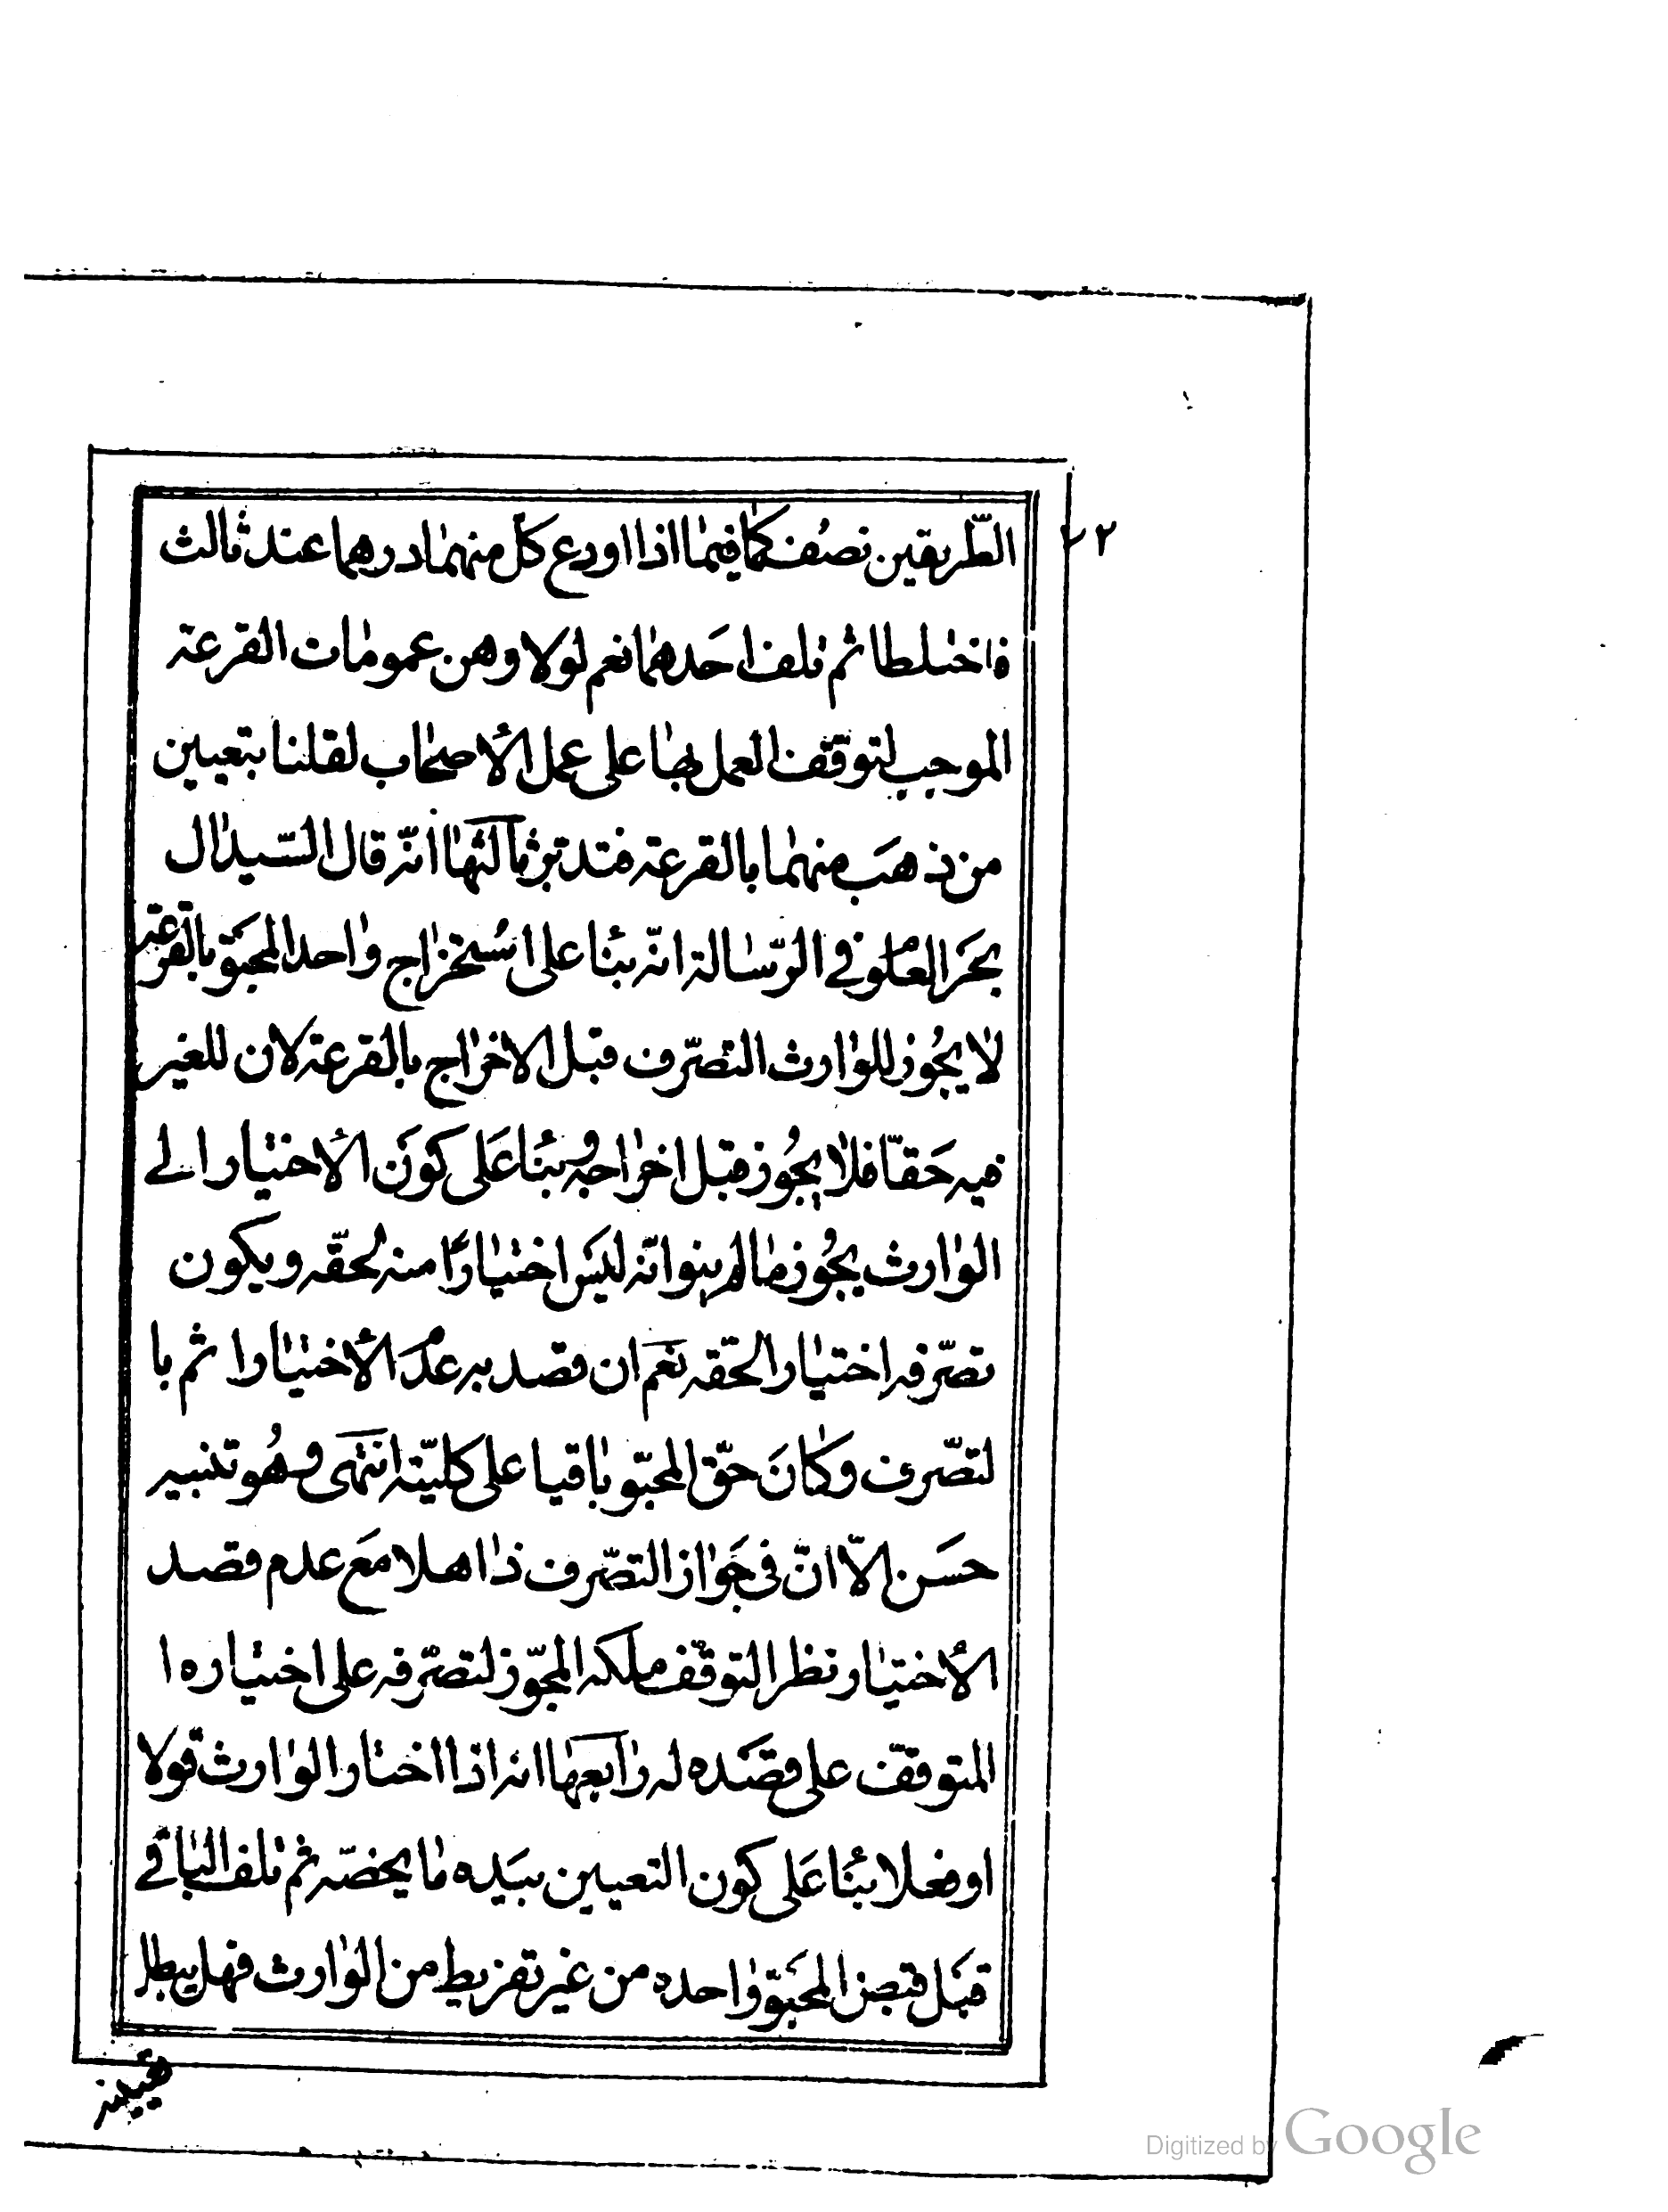 ٤٢
الطّريقين نصف كما فيما اذا اودع كلّ منهما درهما عند ثالث
فاختلطا ثم تلف احدهما نعم لولا وهن عمومات القرعة
الموجب لتوقّف العمل بها على عمل الأصحاب لقلنا بتعيين
من ذهب منهما بالقرعة فتدبّر ثالثها انّه قال السّيد ال
بحر العلوم في الرّسالة انّه بناء على استخراج واحد المحبوّ بالقرعة
لا يجوز للوارث التصرّف قبل الاخراج بالقرعة لان للغير
فيه حقّا فلا يجوز قبل اخراجه وبناء على كون الأختيار الى
الوارث يجوز ما لم ينو انّه ليس اختيارًا منه لحقّه ويكون
تصرّفه اختيار الحقّه نعم ان قصد به عدم الأختيار اثم با
لتصّرف وكان حقّ المحبّو باقيا على كليّته انتهى وهو تنبيه
حسن الّا انّ فى جواز التصّرف ذاهلا مع عدم قصد
الأختيار نظر التوقّف ملكه المجوّز لتصرّفه على اختياره ا
المتوقّف على قصده له رابعها انه اذا اختار الوارث قولا
او فعلا بناء على كون التعيين بيده ما يخصّه ثم تلف الباقي
قبل قبض المحبوّ واحده من غير تفريط من الوارث فهل يبطل
Digitized by Google